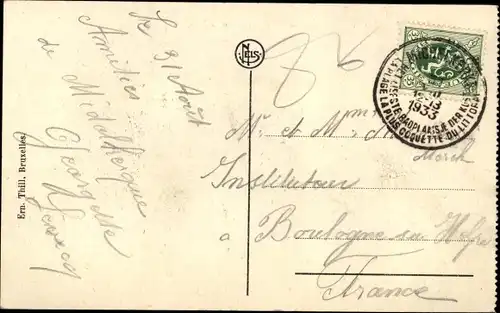 Le 31 Août
Amitiés
de Middelkerque
Georgette
Ern. Thill, Bruxelles
NELS
MIDDELKERKE
1933
BADPLAATSJE DER KUST
LA PLAGE LA PLUS COQUETTE DU LITTORAL
Mr et Mme
Instituteur
à Boulogne sur
France